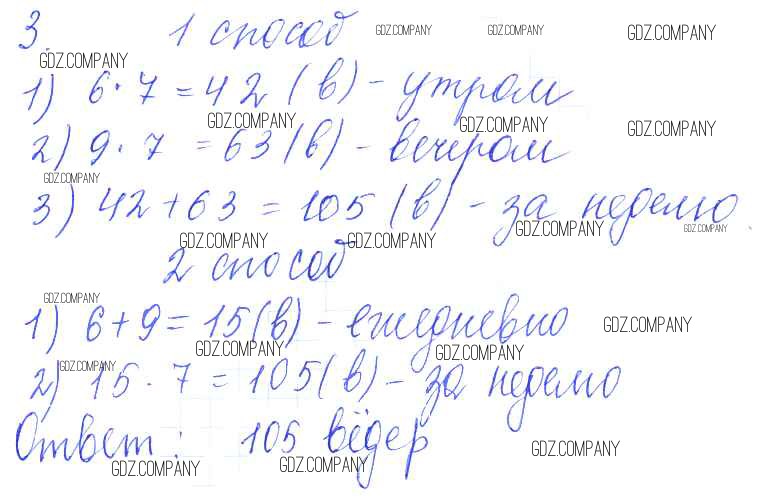 3. 1 способ
GDZ.COMPANY GDZ.COMPANY GDZ.COMPANY
GDZ.COMPANY
1) 6·7=42 (в) - утром
GDZ.COMPANY GDZ.COMPANY GDZ.COMPANY
2) 9·7=63 (в) - вечером
GDZ.COMPANY
3) 42+63=105 (в) - за неделю
GDZ.COMPANY GDZ.COMPANY GDZ.COMPANY GDZ.COMPANY
2 способ
GDZ.COMPANY
1) 6+9=15(в) - ежедневно
GDZ.COMPANY
GDZ.COMPANY GDZ.COMPANY
GDZ.COMPANY
2) 15·7=105(в) - за неделю
Ответ: 105 вёдер
GDZ.COMPANY GDZ.COMPANY GDZ.COMPANY